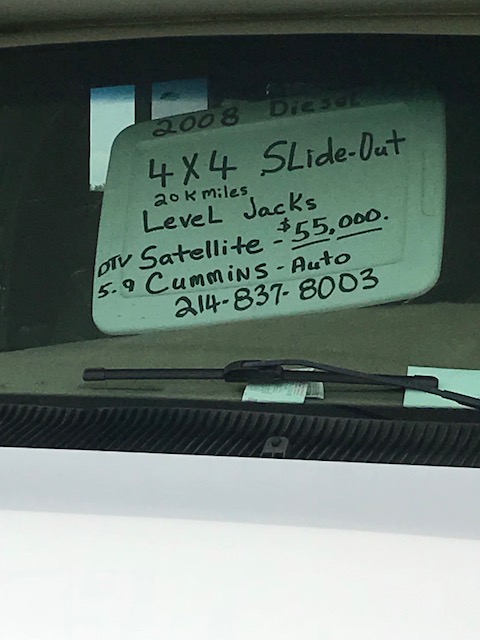 2008 Diesel
4X4 SLide-Out
20K miles
LeveL Jacks
DTV Satellite - $55,000.
5.9 Cummins - Auto
214-837-8003